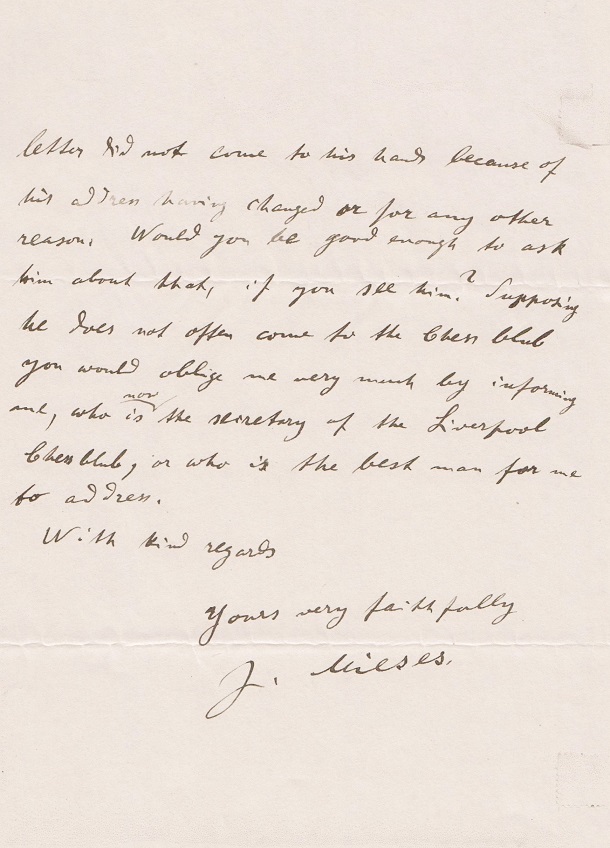 letter did not come to his hands because of
his address having changed or for any other
reason. Would you be good enough to ask
him about that, if you see him? Supposing
he does not often come to the Chess Club
you would oblige me very much by informing
me, who is now the secretary of the Liverpool
Chess Club, or who is the best man for me
to address.
With kind regards
Yours very faithfully
J. Mieses.